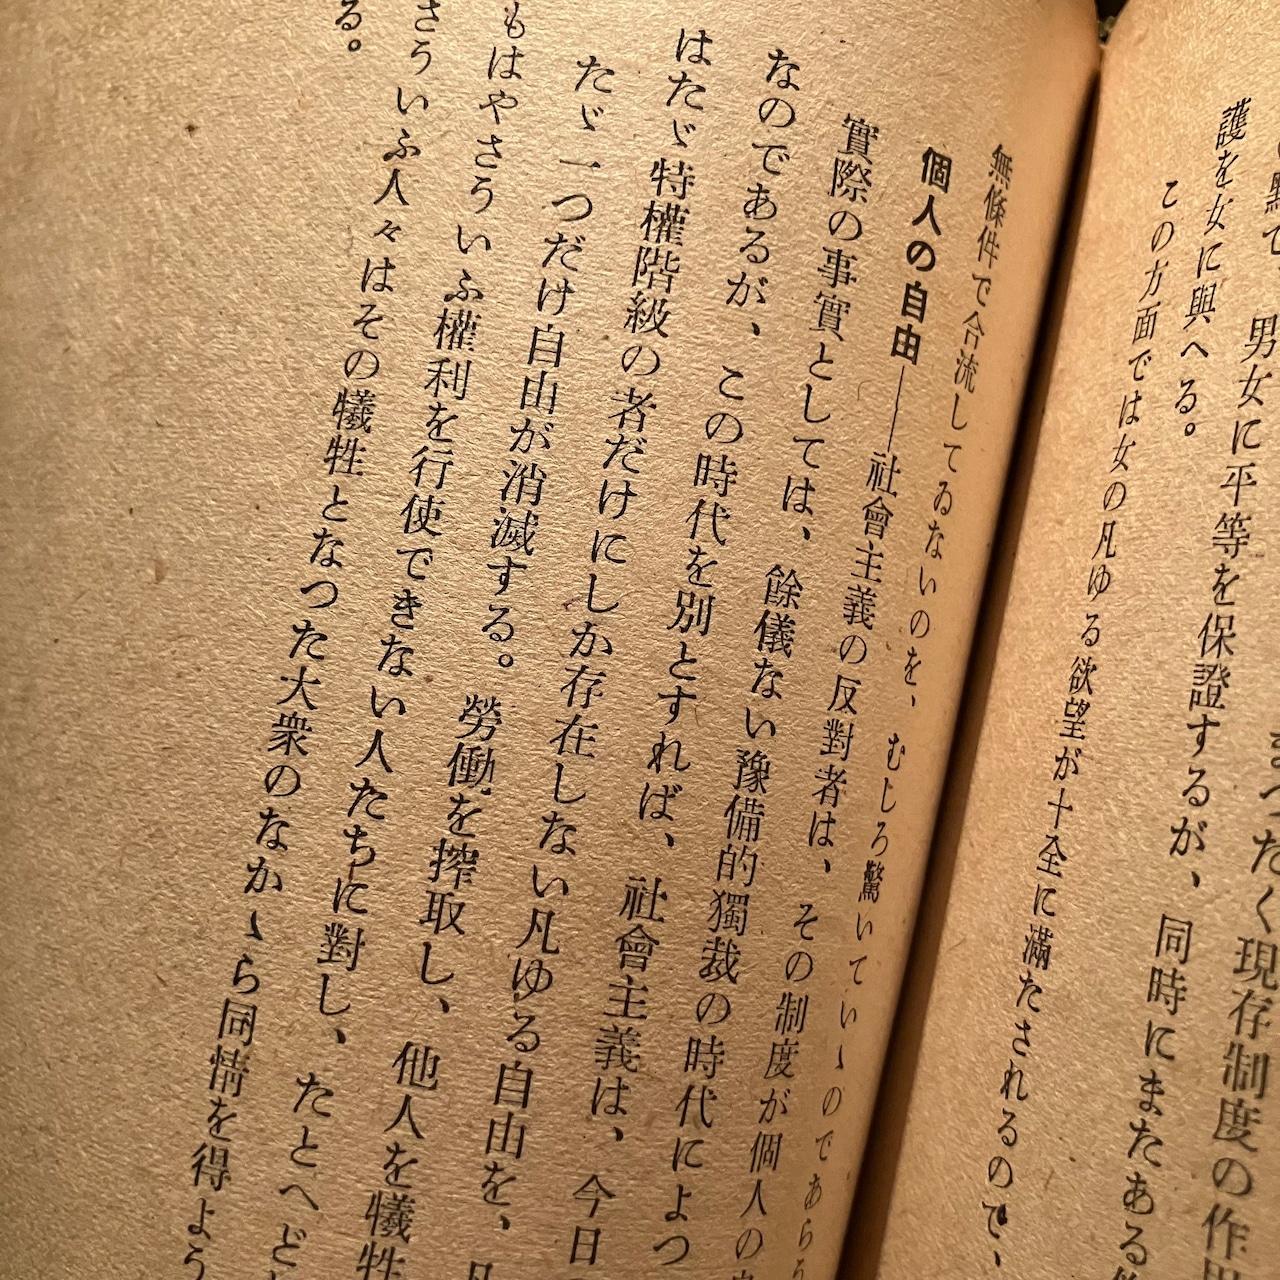 點で、男女に平等を保證するが、同時にまたある
護を女に與へる。
この方面では女の凡ゆる欲望が十全に滿たされるので、
無條件で合流してゐないのを、むしろ驚いていゝのであらう
個人の自由――社會主義の反對者は、その制度が個人の
實際の事實としては、餘儀ない豫備的獨裁の時代によつ
なのであるが、この時代を別とすれば、社會主義は、今日
はたゞ特權階級の者だけにしか存在しない凡ゆる自由を、
たゞ一つだけ自由が消滅する。勞働を搾取し、他人を犧牲
もはやさういふ權利を行使できない人たちに對し、たとへど
さういふ人々はその犧牲となつた大衆のなかゝら同情を得よう
る。